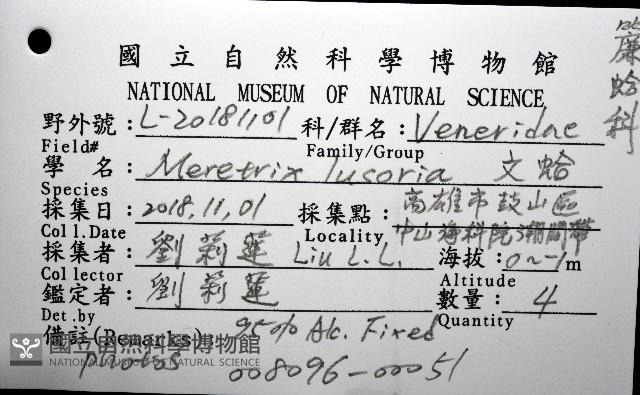 簾蛤科
國立自然科學博物館
NATIONAL MUSEUM OF NATURAL SCIENCE
野外號：L-20181101 科/群名：Veneridae
Field# Family/Group
學名：Meretrix lusoria 文蛤
Species
採集日：2018.11.01 採集點：高雄市鼓山區
Coll.Date Locality 中山海科院潮間帶
採集者：劉莉蓮 Liu L.L. 海拔：0~-1m
Collector Altitude
鑑定者：劉莉蓮 數量：4
Det.by Quantity
備註(Remarks)：95% Alc. Fixed
國立自然科學博物館
NATIONAL MUSEUM OF NATURAL SCIENCE
008096-00051